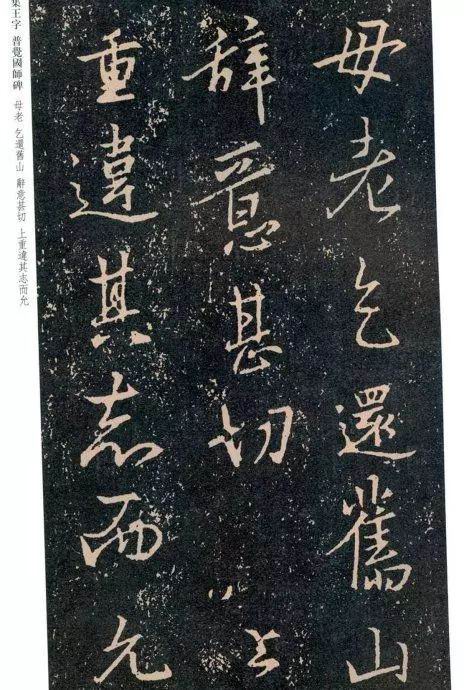 母老乞還舊山
辭意甚切上
重違其志而允
集王字 普覺國師碑 母老 乞還舊山 辭意甚切 上重違其志而允